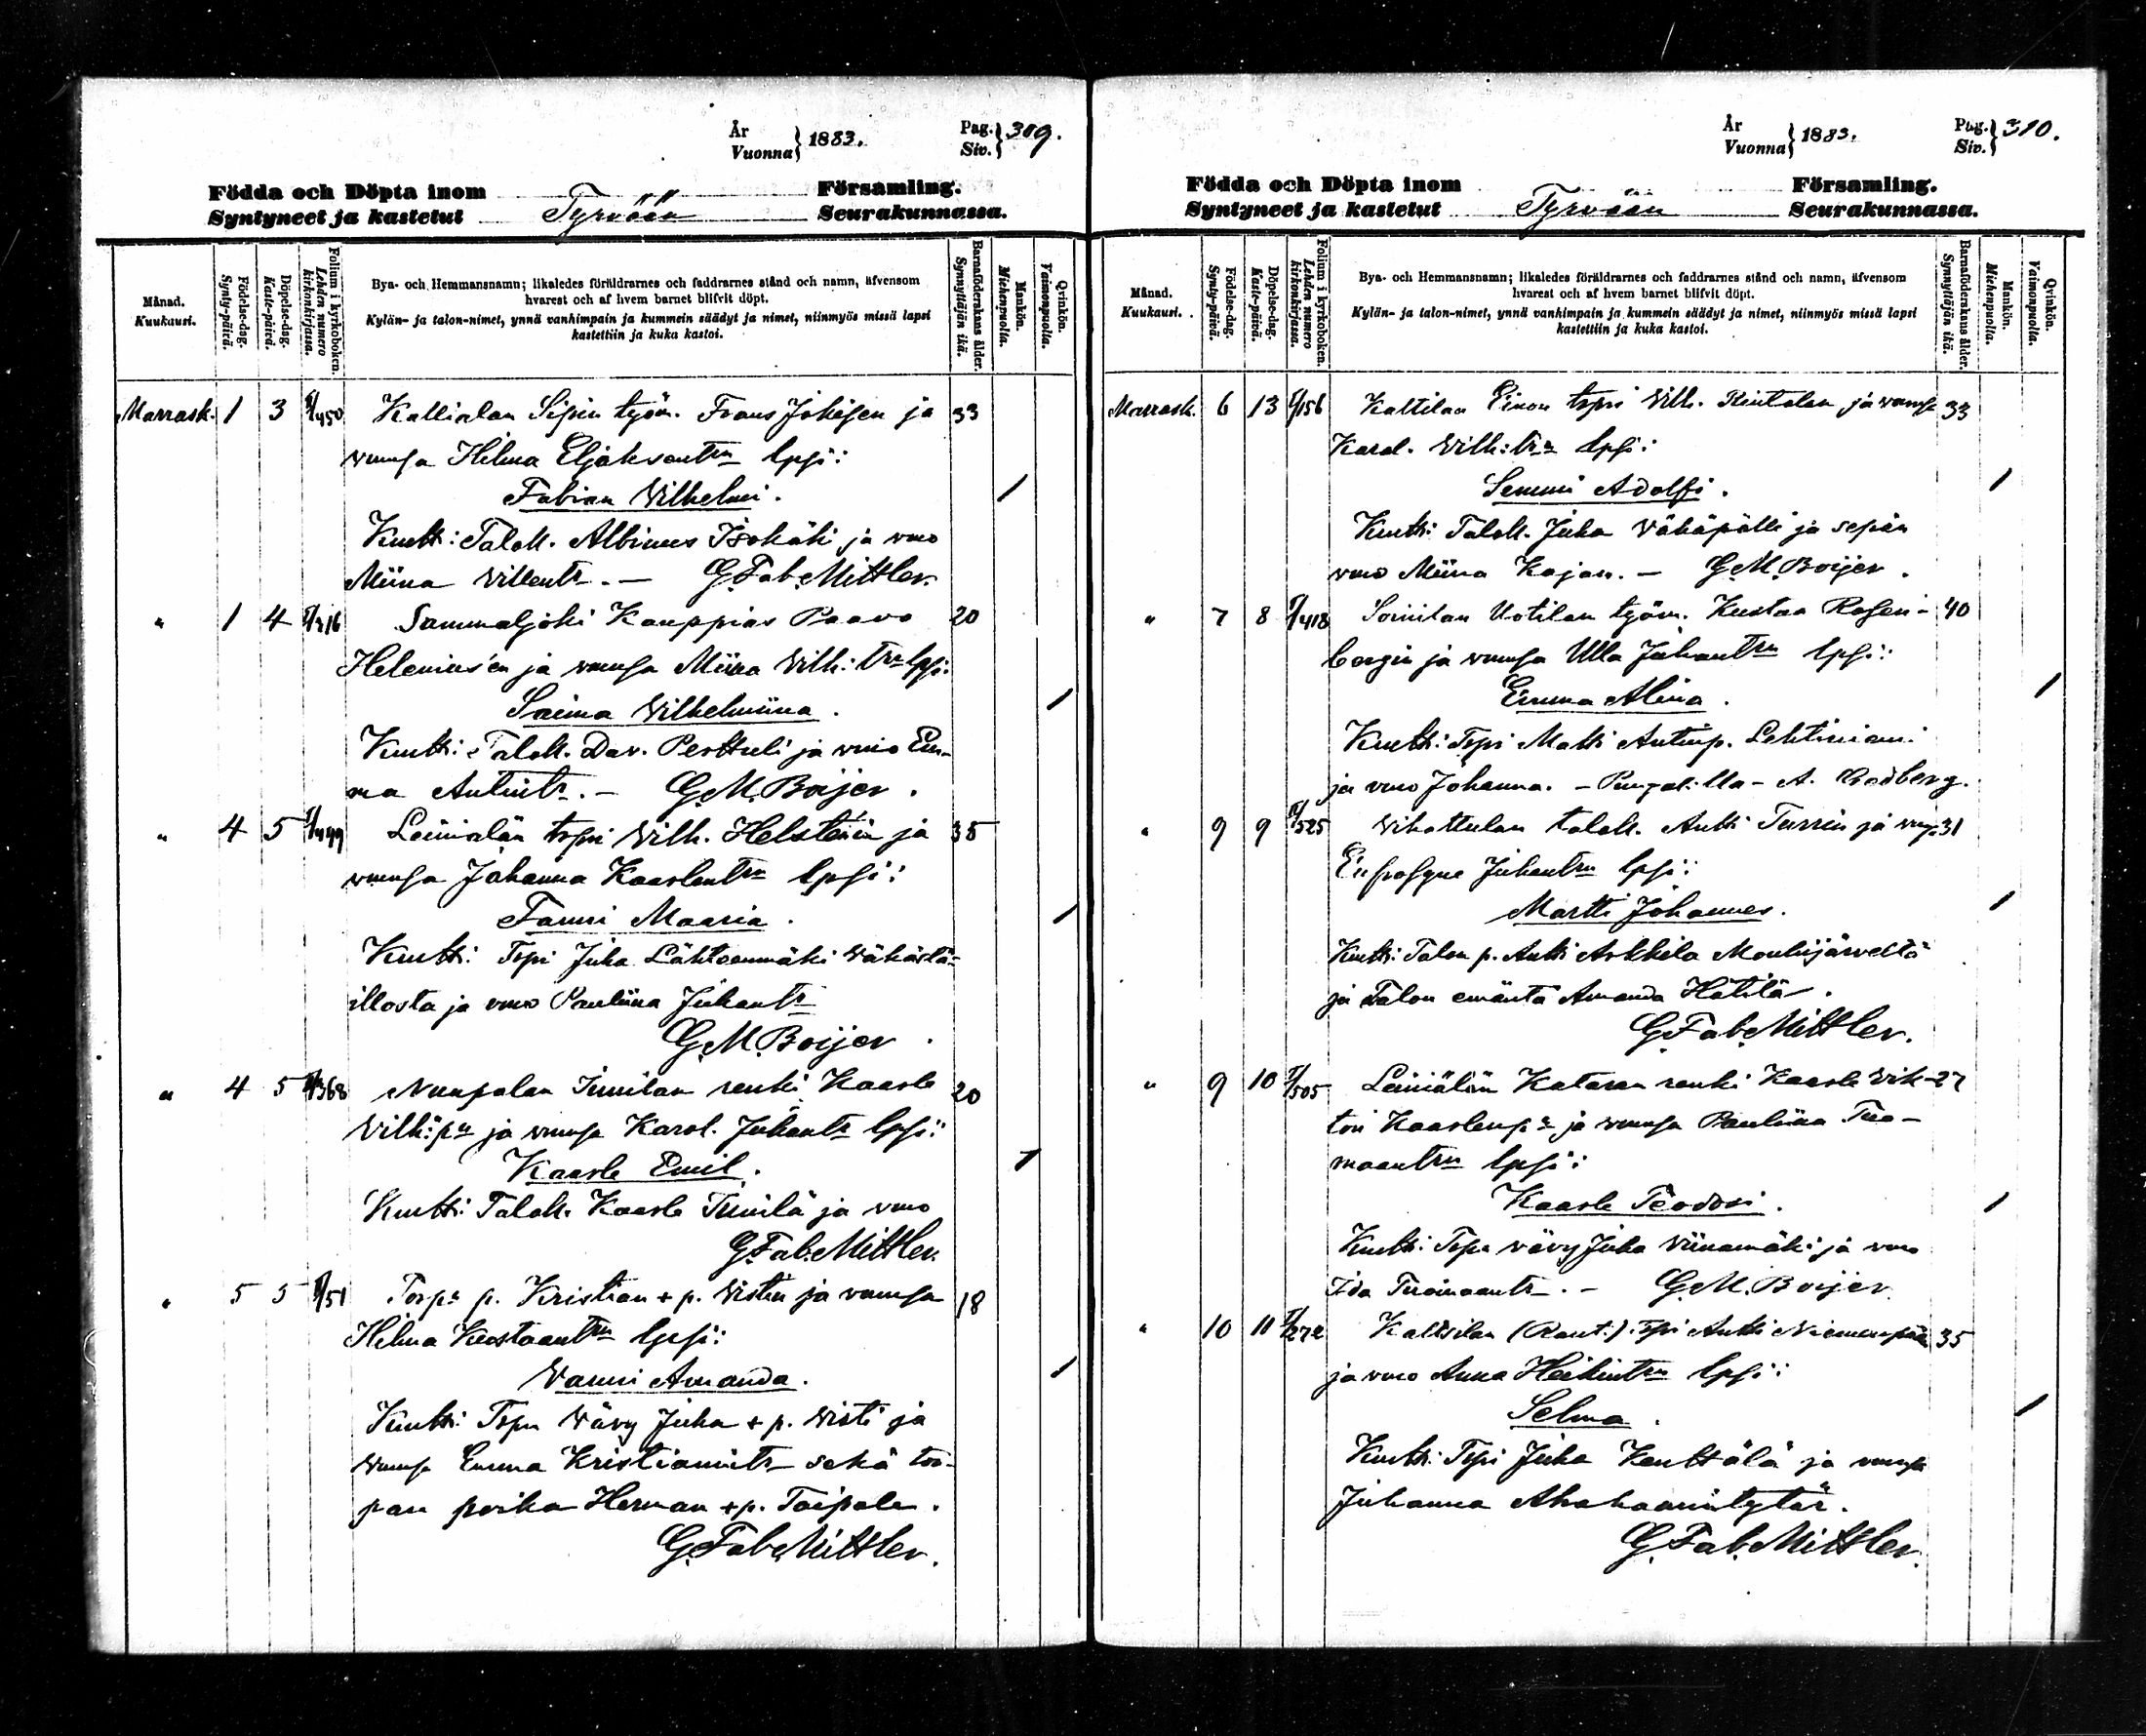 År
Vuonna } 1883.
Pag.
Siv. } 309.
Födda och Döpta inom Församling.
Syntyneet ja kastetut Tyrvään Seurakunnassa.
Månad.
Kuukausi.
Födelse-dag.
Synty-päivä.
Döpelse-dag.
Kaste-päivä.
Folium i kyrkoboken.
Lehden numero kirkonkirjassa.
Bya- och Hemmansnamn; likaledes föräldrarnes och faddrarnes stånd och namn, äfvensom
hvarest och af hvem barnet blifvit döpt.
Kylän- ja talon-nimet, ynnä vanhimpain ja kummein säädyt ja nimet, niinmyös missä lapsi
kastettiin ja kuka kastoi.
Barnaföderskans ålder.
Synnyttäjän ikä.
Mankön.
Miehenpuolia.
Qvinkön.
Vaimonpuolia.
Marrask. 1 3 /450 Kallialan Sipin työm. Frans Johißen ja 33
vmnsa Hilma Eljaksentrn lpsi:
Fabian Wilhelmi.
Kumtt: Taloll. Albinus Isohäki ja vmo
Miina Willentr. — G. Fab. Mittler.
" 1 4 /316 Sammaljoki Kauppias Paavo 20
Helenius'en ja vmnsa Miina Wilh: trn lpsi:
Saima Wilhelmiina.
Kumtt: Taloll. Dav. Perttuli ja vmo Em-
ma Antintr. — G. M. Boijer.
" 4 5 /499 Leiniälän trpri Wilh. Helsténin ja 35
vmnsa Johanna Kaarlentrn lpsi:
Fanni Maaria.
Kumtt: Trpri Juha Lähteenmäki Wähästä-
illosta ja vmo Pauliina Juhantr
G. M. Boijer.
" 4 5 /368 Nuupalan Junnilan renki Kaarle 20
Wilh:pn ja vmnsa Karol. Juhantr lpsi:
Kaarle Emil.
Kumtt: Taloll. Kaarle Junnila ja vmo
G. Fab. Mittler.
" 5 5 /51 Torpn p. Kristian +p. Wistin ja vmnsa 18
Hilma Kustaantrn lpsi:
Wanni Amanda.
Kumtt: Trpn Wävy Juha +p. Wisti ja
vmnsa Emma Kristianintr sekä tor-
pan poika Herman +p. Taipale.
G. Fab. Mittler.
År
Vuonna } 1883.
Pag.
Siv. } 310.
Födda och Döpta inom Församling.
Syntyneet ja kastetut Tyrvään Seurakunnassa.
Månad.
Kuukausi.
Födelse-dag.
Synty-päivä.
Döpelse-dag.
Kaste-päivä.
Folium i kyrkoboken.
Lehden numero kirkonkirjassa.
Bya- och Hemmansnamn; likaledes föräldrarnes och faddrarnes stånd och namn, äfvensom
hvarest och af hvem barnet blifvit döpt.
Kylän- ja talon-nimet, ynnä vanhimpain ja kummein säädyt ja nimet, niinmyös missä lapsi
kastettiin ja kuka kastoi.
Barnaföderskans ålder.
Synnyttäjän ikä.
Mankön.
Miehenpuolia.
Qvinkön.
Vaimonpuolia.
Marrask. 6 13 /156 Kaltilan Einon trpri Wilh. Rintalan ja vmnsa 33
Karol. Wilh:trn lpsi:
Semmi Adolfi.
Kumtt: Taloll. Juha Vähäpälli ja sepän
vmo Miina Kajan. — G. M. Boijer.
" 7 8 /418 Soinilan Uotilan työm. Kustaa Rosen- 40
bergin ja vmnsa Ulla Juhantrn lpsi:
Emma Alina.
Kumtt: Trpri Matti Antinp. Lehtiniemi
ja vmo Johanna. — A.
" 9 9 /525 Vihattulan taloll. Antti Turrin ja 31
Eufrosyne Juhantrn lpsi:
Martti Johannes.
Kumtt: Talon p. Antti Arkkila Mouhijärveltä
ja Talon emäntä Amanda Hätilä.
G. Fab. Mittler.
" 9 10 /505 Leiniälän Kataran renki Kaarle Wik- 27
tori Kaarlenpn ja vmnsa Pauliina Tuo-
maantrn lpsi:
Kaarle Teodori.
Kumtt: Trpn vävy Juha Viinamäki ja vmo
Ida Tuomaantr. — G. M. Boijer.
" 10 11 /272 Kaltsilan (Raut.) Trpri Antti Niemenpään 35
ja vmo Anna Heikintrn lpsi:
Selma.
Kumtt: Trpri Juha Kenttälä ja vmnsa
Juhanna Abrahamintytär.
G. Fab. Mittler.